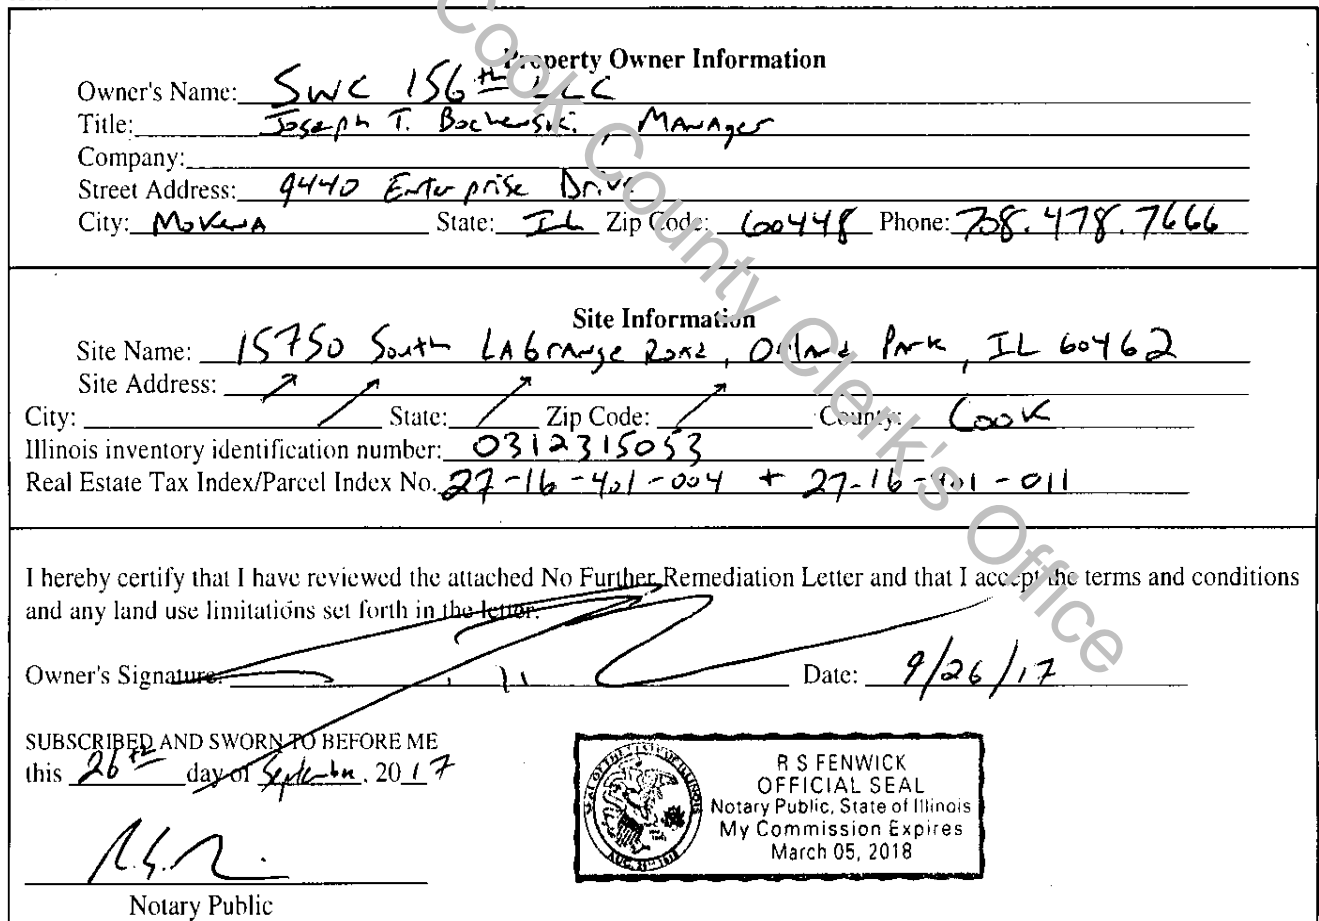 Property Owner Information
Owner's Name: SWC 156th LLC
Title: Joseph T. Bochenski, Manager
Company:
Street Address: 9440 Enterprise Drive
City: Mokena State: IL Zip Code: 60448 Phone: 708.478.7666
Site Information
Site Name: 15750 South LaGrange Road, Orland Park, IL 60462
Site Address:
City: State: Zip Code: County: Cook
Illinois inventory identification number: 0312315053
Real Estate Tax Index/Parcel Index No. 27-16-401-004 + 27-16-401-011
I hereby certify that I have reviewed the attached No Further Remediation Letter and that I accept the terms and conditions
and any land use limitations set forth in the letter.
Owner's Signature: Date: 9/26/17
SUBSCRIBED AND SWORN TO BEFORE ME
this 26th day of September, 2017
Notary Public
R S FENWICK
OFFICIAL SEAL
Notary Public, State of Illinois
My Commission Expires
March 05, 2018
SEAL OF THE STATE OF ILLINOIS
AUG. 26TH 1818
Cook County Clerk's Office